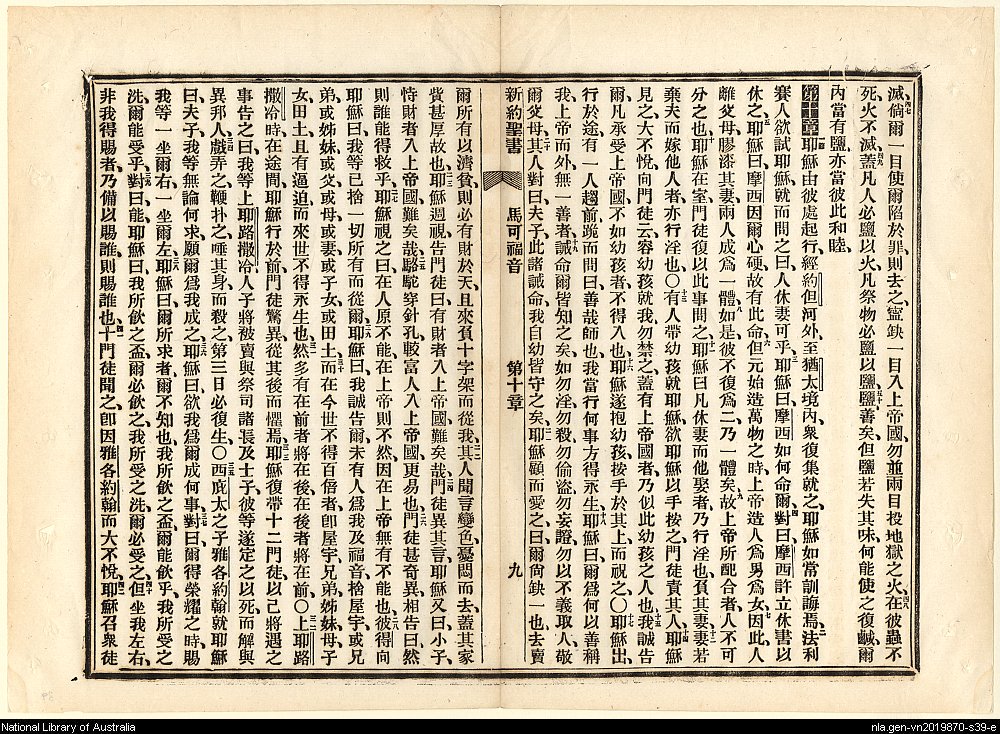 滅、倘爾一目使爾陷於罪、則去之、寧缺一目入上帝國、勿並兩目投地獄之火、在彼蟲不
死火不滅、蓋凡人必鹽以火、凡祭物必鹽以鹽、鹽善矣、但鹽若失其味、何能使之復鹹、爾
內當有鹽、亦當彼此和睦、
第十章 耶穌由彼處起行、經約但河外、至猶太境內、衆復集就之、耶穌如常訓誨焉、法利
賽人欲試耶穌、就而問之曰、人休妻可乎、耶穌曰、摩西如何命爾、對曰、摩西許立休書以
休之、耶穌曰、摩西因爾心硬、故有此命、但元始造萬物之時、上帝造人、爲男爲女、因此人
離父母、膠漆其妻、兩人成爲一體、如是彼不復爲二、乃一體矣、故上帝所配合者、人不可
分之也、耶穌在室、門徒復以此事問之、耶穌曰、凡休妻而他娶者、乃行淫也、負其妻、妻若
棄夫而嫁他人者、亦行淫也、○有人帶幼孩就耶穌、欲耶穌以手按之、門徒責其人、耶穌
見之、大不悅、向門徒云、容幼孩就我、勿禁之、蓋有上帝國者、乃似此幼孩之人也、我誠告
爾、凡承受上帝國、不如幼孩者、不得入也、耶穌遂抱幼孩、按手於其上而祝之、○耶穌出
行於途、有一人趨前、跪而問曰、善哉師也、我當行何事、方得永生、耶穌曰、爾爲何以善稱
我、上帝而外、無一善者、誡命爾皆知之矣、如勿淫、勿殺、勿偷盜、勿妄證、勿以不義取人、敬
爾父母、其人對曰、夫子、此諸誡命、我自幼皆守之矣、耶穌顧而愛之、曰、爾尙缺一也、去賣
新約聖書 馬可福音 第十章 九
爾所有以濟貧、則必有財於天、且來負十字架而從我、其人聞言變色、憂悶而去、蓋其家
貲甚厚故也、耶穌週視、告門徒曰、有財者入上帝國、難矣哉、門徒異其言、耶穌又曰、小子、
恃財者入上帝國、難矣哉、駱駝穿針孔、較富人入上帝國更易也、門徒甚奇異、相告曰、然
則誰能得救乎、耶穌視之曰、在人原不能、在上帝則不然、因在上帝無有不能也、彼得向
耶穌曰、我等已捨一切所有而從爾、耶穌曰、我誠告爾、未有人爲我及福音、捨屋宇、或兄
弟、或姊妹、或父、或母、或妻、或子女、或田土、而在今世不得百倍者、卽屋宇、兄弟、姊妹、母、子
女、田土、且有逼迫、而來世不得永生也、然多有在前者、將在後、在後者、將在前、○上耶路
撒冷時、在途間、耶穌行於前、門徒驚異、從其後而懼焉、耶穌復帶十二門徒、以己將遇之
事告之曰、我等上耶路撒冷、人子將被賣與祭司諸長及士子、彼等遂定之以死、而解與
異邦人、戲弄之、鞭扑之、唾其身而殺之、第三日必復生、○西庇太之子雅各約翰就耶穌
曰、夫子、我等無論何求、願爾爲我成之、耶穌曰、欲我爲爾成何事、對曰、爾得榮耀之時、賜
我等一坐爾右、一坐爾左、耶穌曰、爾所求者、爾不知也、我所飲之盃、爾能飲乎、我所受之
洗、爾能受乎、對曰、能、耶穌曰、我所飲之盃、爾必飲之、我所受之洗、爾必受之、但坐我左右、
非我得賜者、乃備以賜誰、則賜誰也、十門徒聞之、卽因雅各約翰而大不悅、耶穌召衆徒
National Library of Australia
nla.gen-vn2019870-s39-e